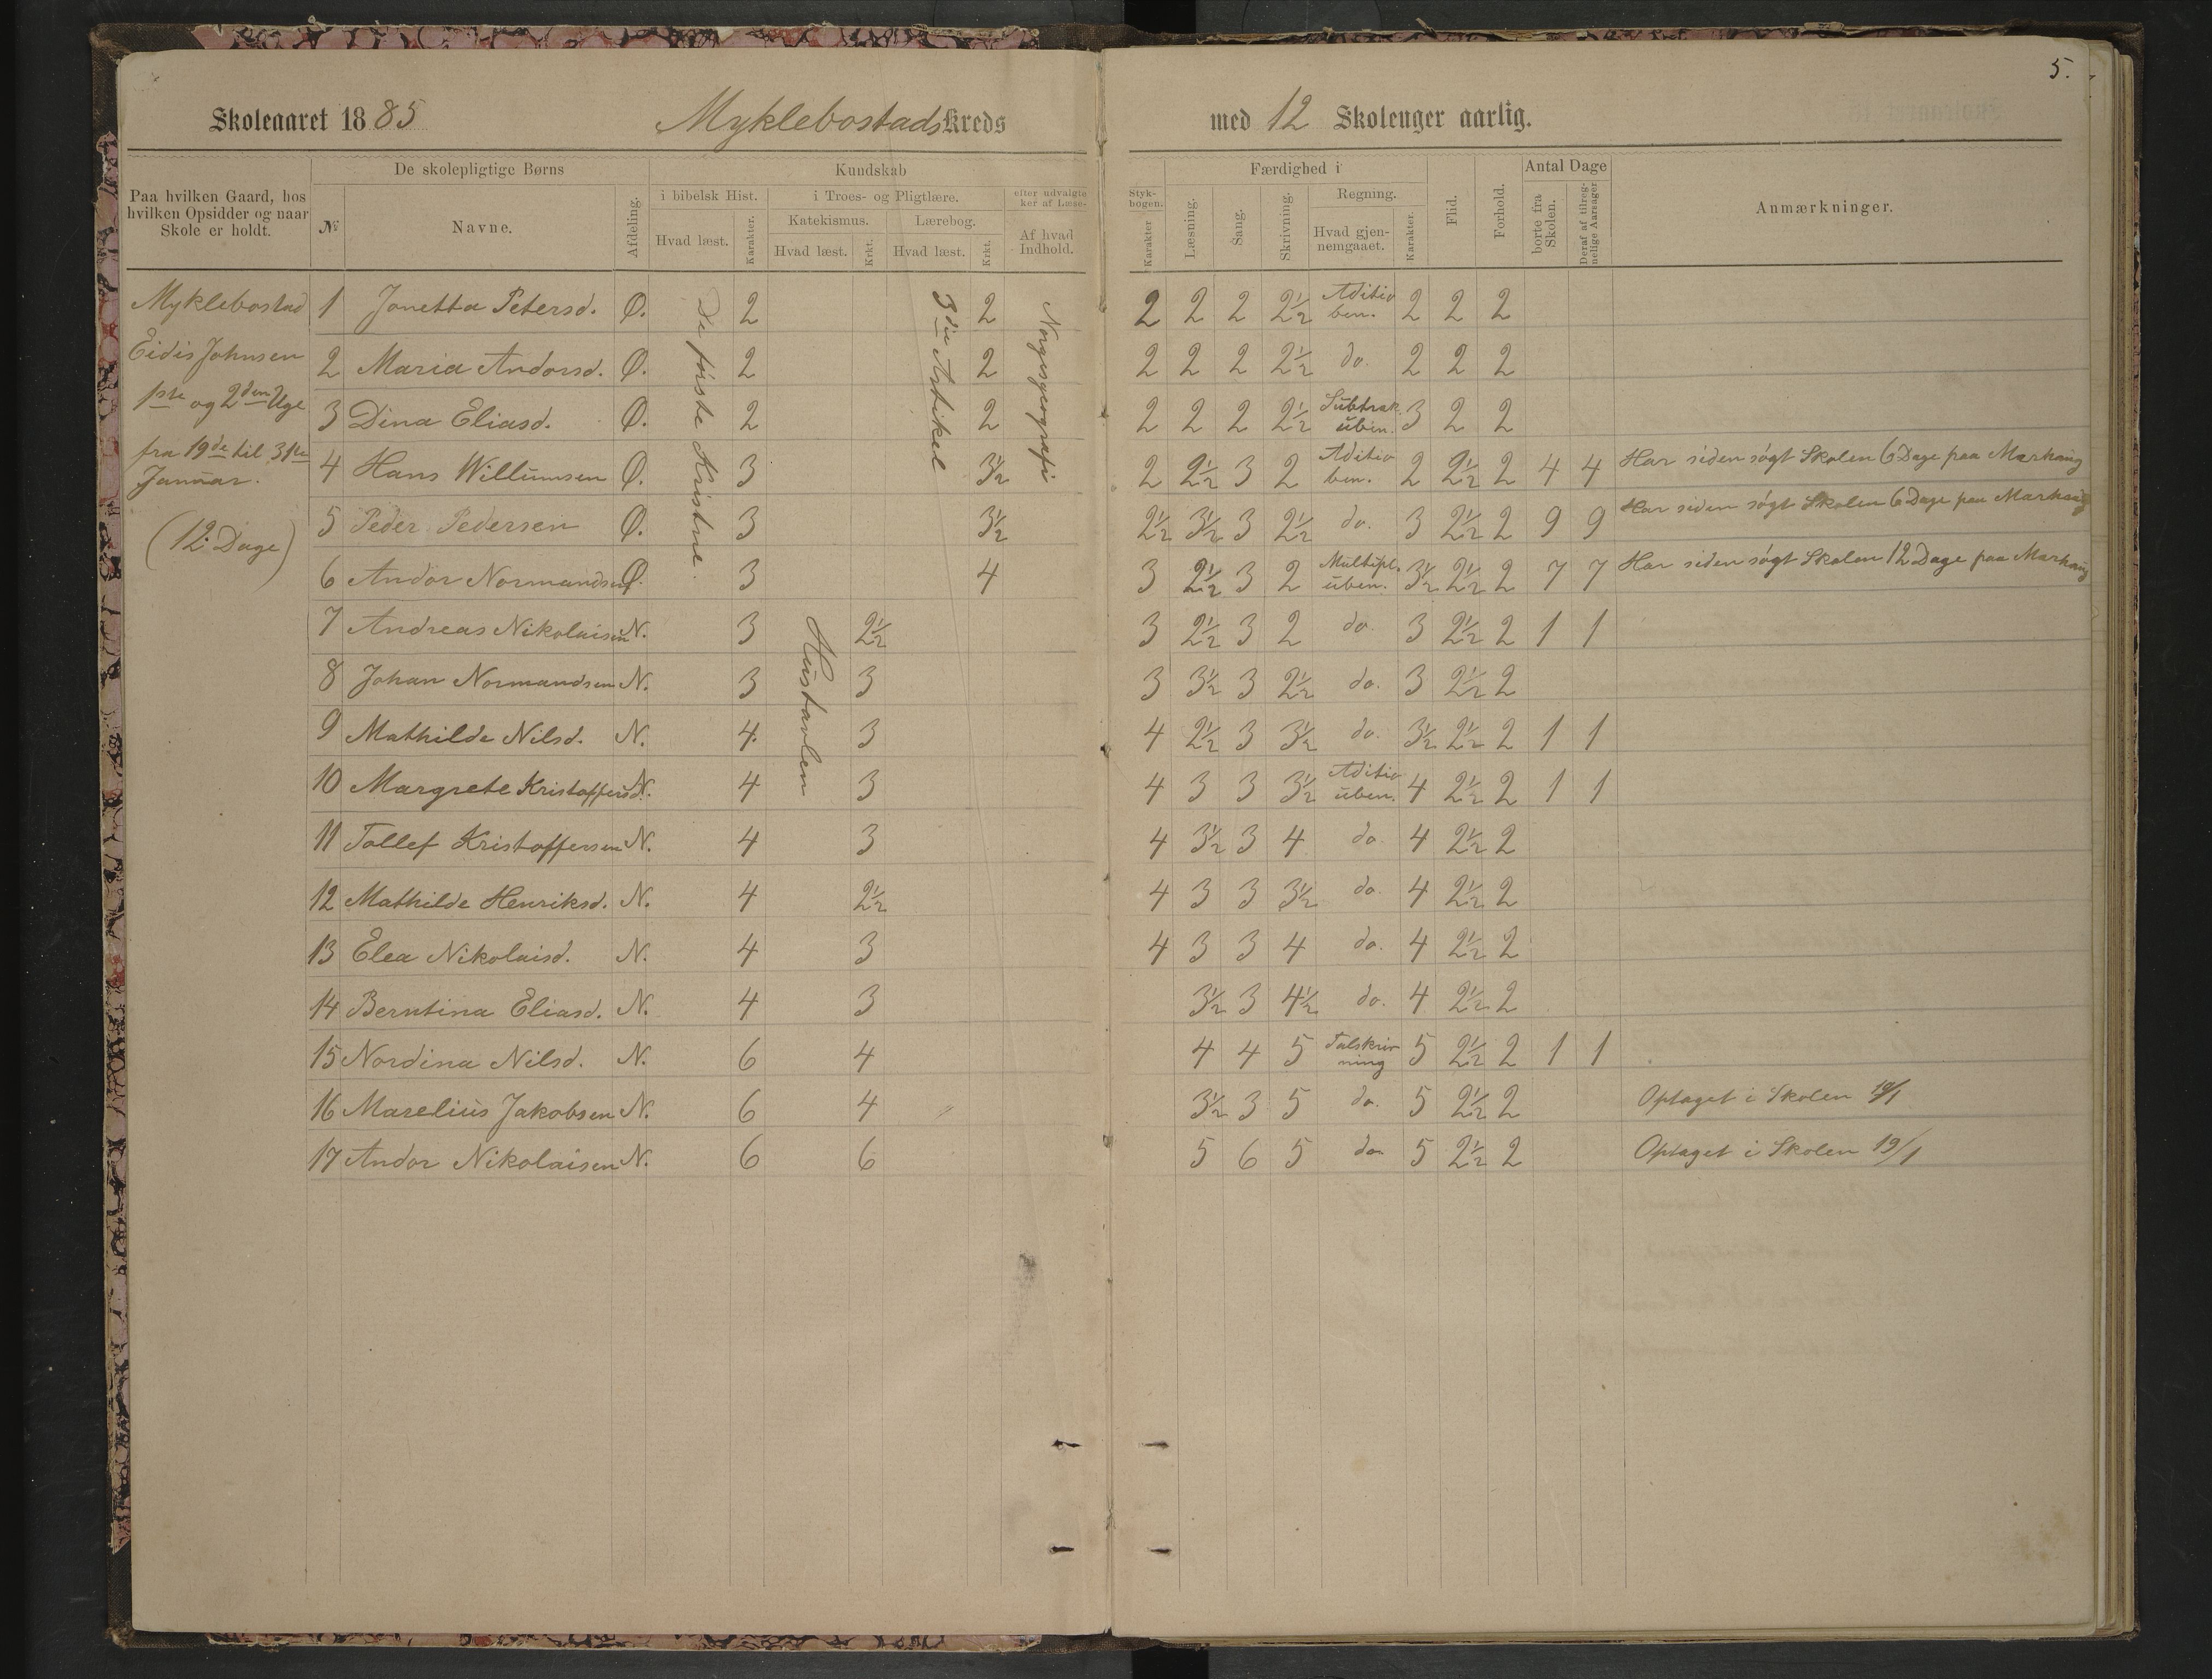 5.
Skoleaaret 1885 Myklebostads Kreds med 12 Skoleuger aarlig.
Paa hvilken Gaard, hos hvilken Opsidder og naar Skole er holdt.
De skolepligtige Børns
№ Navne. Afdeling.
Kundskab
i bibelsk Hist. Hvad læst. Karakter.
i Troes- og Pligtlære.
Katekismus. Hvad læst. Krkt.
Lærebog. Hvad læst. Krkt.
efter udvalgte
ker af Læse-
Af hvad Indhold.
Styk-
bogen. Karakter
Færdighed i
Læsning. Sang. Skrivning.
Regning. Hvad gjen-
nemgaaet. Karakter.
Flid. Forhold.
Antal Dage
borte fra Skolen. Deraf af tilreg-
nelige Aarsager
Anmærkninger.
Myklebostad
Eidis Johnsen
1ste og 2den Uge
fra 19de til 31te
Januar.
(12 Dage)
De første Kristne.
Hustavlen
3die Artikel
Norgesgeografi
1 Jonetta Petersd. Ø. 2 2 2 2 2 2½ Aditio ben. 2 2 2
2 Maria Andorsd. Ø. 2 2 2 2 2 2½ do. 2 2 2
3 Dina Eliasd. Ø. 2 2 2 2 2 2½ Subtrak. uben. 3 2 2
4 Hans Willumsen Ø. 3 3½ 2 2½ 3 2 Aditio ben. 2 2½ 2 4 4 Har siden søgt Skolen 6 Dage paa
5 Peder Pedersen Ø. 3 3½ 2½ 3½ 3 2½ do. 3 2½ 2 9 9 Har siden søgt Skolen 6 Dage paa
6 Andor Normandsen Ø. 3 4 3 2½ 3 2 Multipl. uben. 3½ 2½ 2 7 7 Har siden søgt Skolen 12 Dage paa
7 Andreas Nikolaisen N. 3 2½ 3 2½ 3 2 do. 3 2½ 2 1 1
8 Johan Normandsen N. 3 3 3 3½ 3 2½ do. 3 2½ 2
9 Mathilde Nilsd. N. 4. 3 4 2½ 3 3½ do. 3½ 2½ 2 1 1
10 Margrete Kristoffersd. N. 4 3 4 3 3 3½ Aditio uben. 4 2½ 2 1 1
11 Tollef Kristoffersen N. 4 3 4 3½ 3 4 do 4 2½ 2
12 Mathilde Henriksd. N. 4 2½ 4 3 3 3½ do. 4 2½ 2
13 Elea Nikolaisd. N. 4 3 4 3 3 4 do. 4 2½ 2
14 Berntina Eliasd. N. 4 3 3½ 3 4½ do. 4 2½ 2
15 Nordina Nilsd. N. 6 4 4 4 5 Talskriv ning 5 2½ 2 1 1
16 Marelius Jakobsen N. 6 4 3½ 3 5 do. 5 2½ 2 Optaget i Skolen 19/1
17 Andor Nikolaisen N. 6 6 5 6 5 do. 5 2½ 2 Optaget i Skolen 19/1